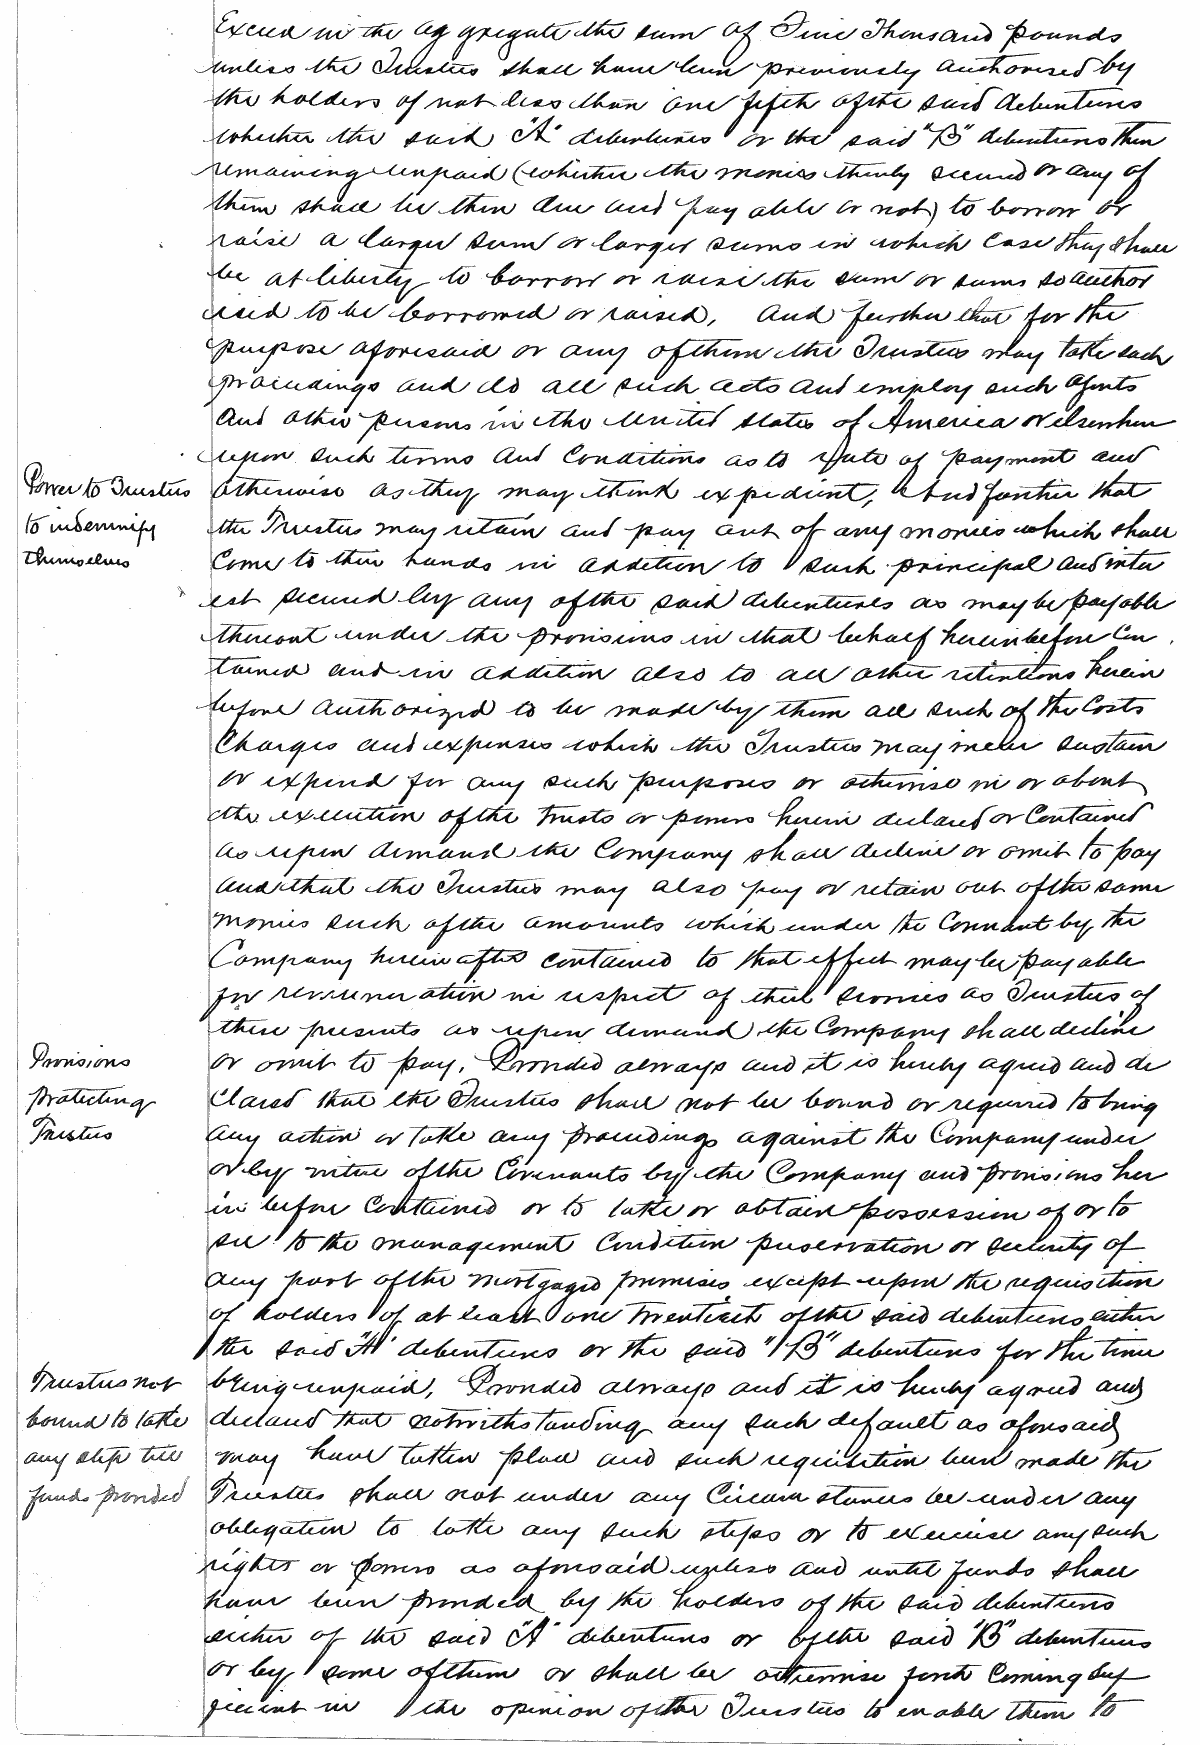 Exceed in the aggregate the sum of Five Thousand pounds
unless the Trustees shall have been previously authorised by
the holders of not less than one fifth of the said debentures
whether the said "A" debentures or the said "B" debentures then
remaining unpaid (whether the monies thereby secured or any of
them shall be then due and payable or not) to borrow or
raise a larger sum or larger sums in which case they shall
be at liberty to borrow or raise the sum or sums so author
ised to be borrowed or raised, And further that for the
purpose aforesaid or any of them the Trustees may take such
proceedings and do all such acts and employ such agents
and other persons in the United States of America or elsewhere
upon such terms and conditions as to rate of payment and
Power to Trustees
to indemnify
themselves
otherwise as they may think expedient, And further that
the Trustees may retain and pay out of any monies which shall
Come to their hands in addition to such principal and inter
est secured by any of the said debentures as may be payable
thereout under the provisions in that behalf hereinbefore Con
tained and in addition also to all other retentions herein
before authorized to be made by them all such of the Costs
Charges and expenses which the Trustees may incur sustain
or expend for any such purposes or otherwise in or about
the execution of the trusts or powers herein declared or Contained
as upon demand the Company shall decline or omit to pay
and that the Trustees may also pay or retain out of the same
monies such of the amounts which under the Covenant by the
Company hereinafter contained to that effect may be payable
for remuneration in respect of their services as Trustees of
these presents as upon demand the Company shall decline
Provisions
protecting
Trustees
or omit to pay, Provided always and it is hereby agreed and de
clared that the Trustees shall not be bound or required to bring
any action or take any proceedings against the Company under
or by virtue of the Covenants by the Company and provisions her
in before Contained or to take or obtain possession of or to
see to the management Condition preservation or security of
any part of the mortgaged premises except upon the requisition
of holders of at least one twentieth of the said debentures either
the said "A" debentures or the said "B" debentures for the time
Trustees not
bound to take
any step till
funds provided
being unpaid, Provided always and it is hereby agreed and
declared that notwithstanding any such default as aforesaid
may have taken place and such requisition been made the
Trustees shall not under any Circumstances be under any
obligation to take any such steps or to exercise any such
rights or powers as aforesaid unless and until funds shall
have been provided by the holders of the said debentures
either of the said "A" debentures or of the said "B" debentures
or by some of them or shall be otherwise forth Coming suf
ficient in the opinion of the Trustees to enable them to